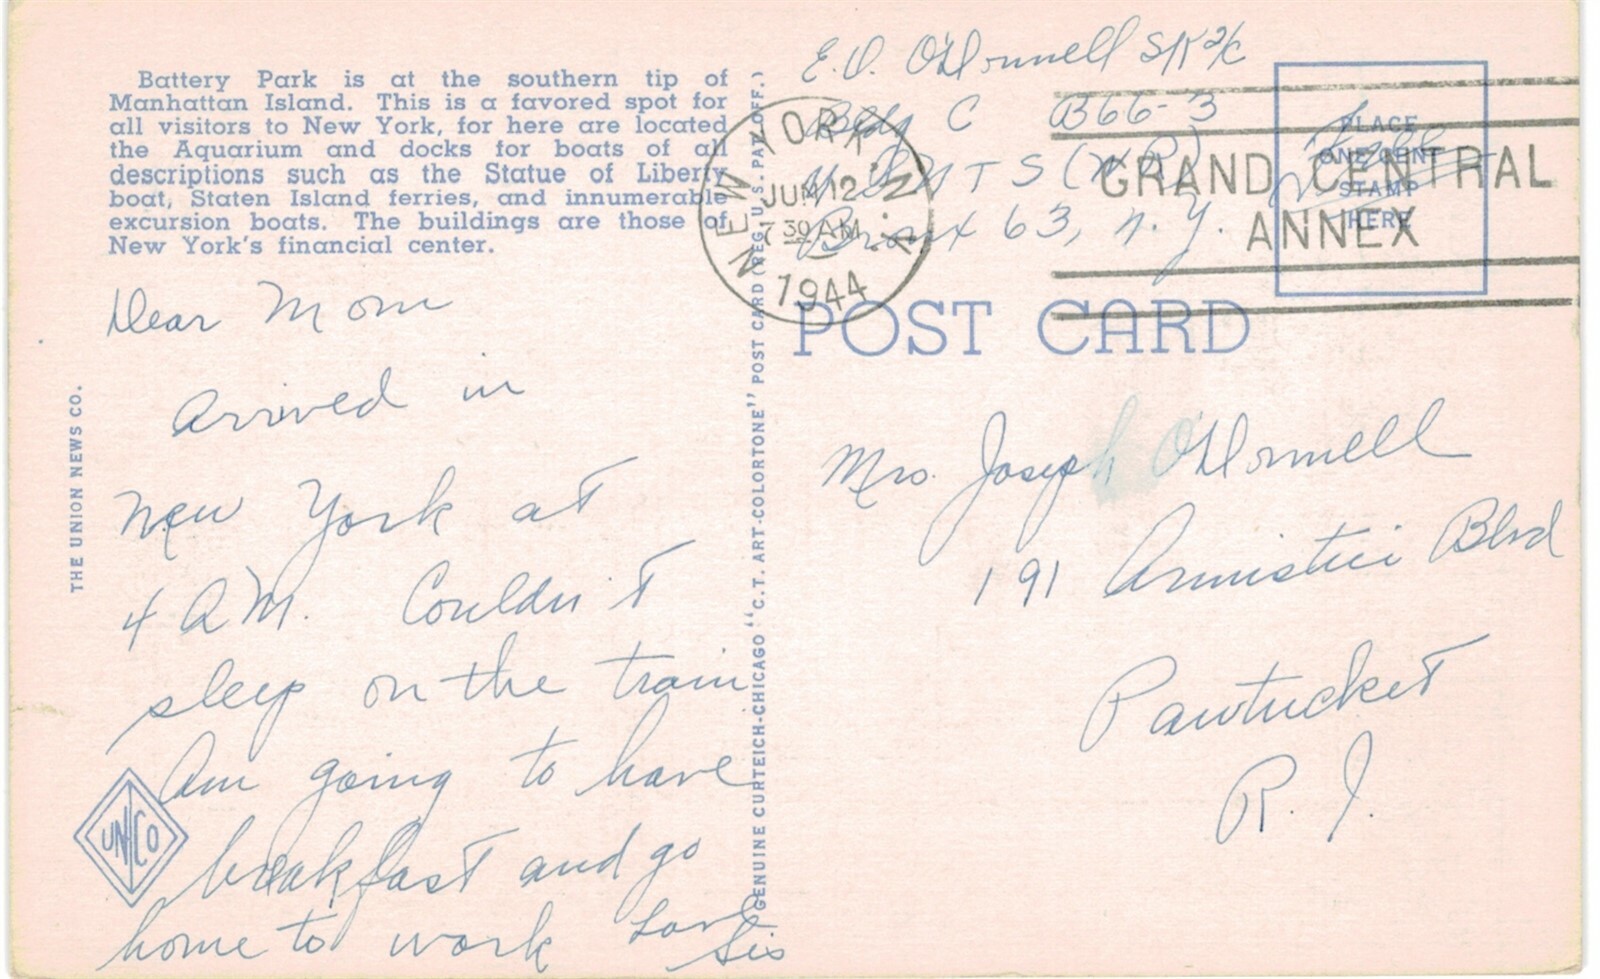 Battery Park is at the southern tip of
Manhattan Island. This is a favored spot for
all visitors to New York, for here are located
the Aquarium and docks for boats of all
descriptions such as the Statue of Liberty
boat, Staten Island ferries, and innumerable
excursion boats. The buildings are those of
New York's financial center.
Dear Mom
Arrived in
New York at
4 A.M. Couldn't
sleep on the train
Am going to have
breakfast and go
home to work Love
Sis
THE UNION NEWS CO.
UNCO
GENUINE CURTEICH-CHICAGO "C.T. ART-COLORTONE" POST CARD (REG. U.S. PAT. OFF.)
E.V. O'Donnell S/K 2/c
Bldg C B66-3
U S N T S (W R)
Bronx 63, N.Y.
Free
NEW YORK, N.Y.
JUN 12
7 30 AM
1944
GRAND CENTRAL
ANNEX
PLACE
ONE CENT
STAMP
HERE
POST CARD
Mrs. Joseph O'Donnell
191 Armistice Blvd
Pawtucket
R. I.